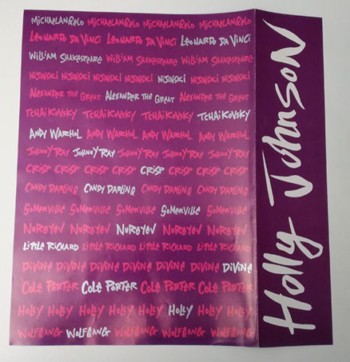 MICHAELANGELO MICHAELANGELO MICHAELANGELO MICHAELANGELO
LEONARDO DA VINCI LEONARDO DA VINCI LEONARDO DA VINCI
William Shakespeare William Shakespeare William Shakespeare
NIJINSKI NIJINSKI NIJINSKI NIJINSKI NIJINSKI
ALEXANDER THE GREAT ALEXANDER THE GREAT ALEXANDER THE GREAT
TCHAIKOVSKY TCHAIKOVSKY TCHAIKOVSKY TCHAIKOVSKY
ANDY WARHOL ANDY WARHOL ANDY WARHOL ANDY WARHOL
JOHNNY RAY JOHNNY RAY JOHNNY RAY JOHNNY RAY JOHNNY RAY
CRISP CRISP CRISP CRISP CRISP CRISP CRISP CRISP
CANDY DARLING CANDY DARLING CANDY DARLING CANDY DARLING
SoMerville SoMerville SoMerville SoMerville
NUREYEV NUREYEV NUREYEV NUREYEV NUREYEV
LITTLE RICHARD LITTLE RICHARD LITTLE RICHARD LITTLE RICHARD
DiViNE DiViNE DiViNE DiViNE DiViNE DiViNE DiViNE
COLE PORTER COLE PORTER COLE PORTER COLE PORTER
HOLLY HOLLY HOLLY HOLLY HOLLY HOLLY HOLLY
WOLFGANG WOLFGANG WOLFGANG WOLFGANG WOLFGANG
Holly JohnsoN